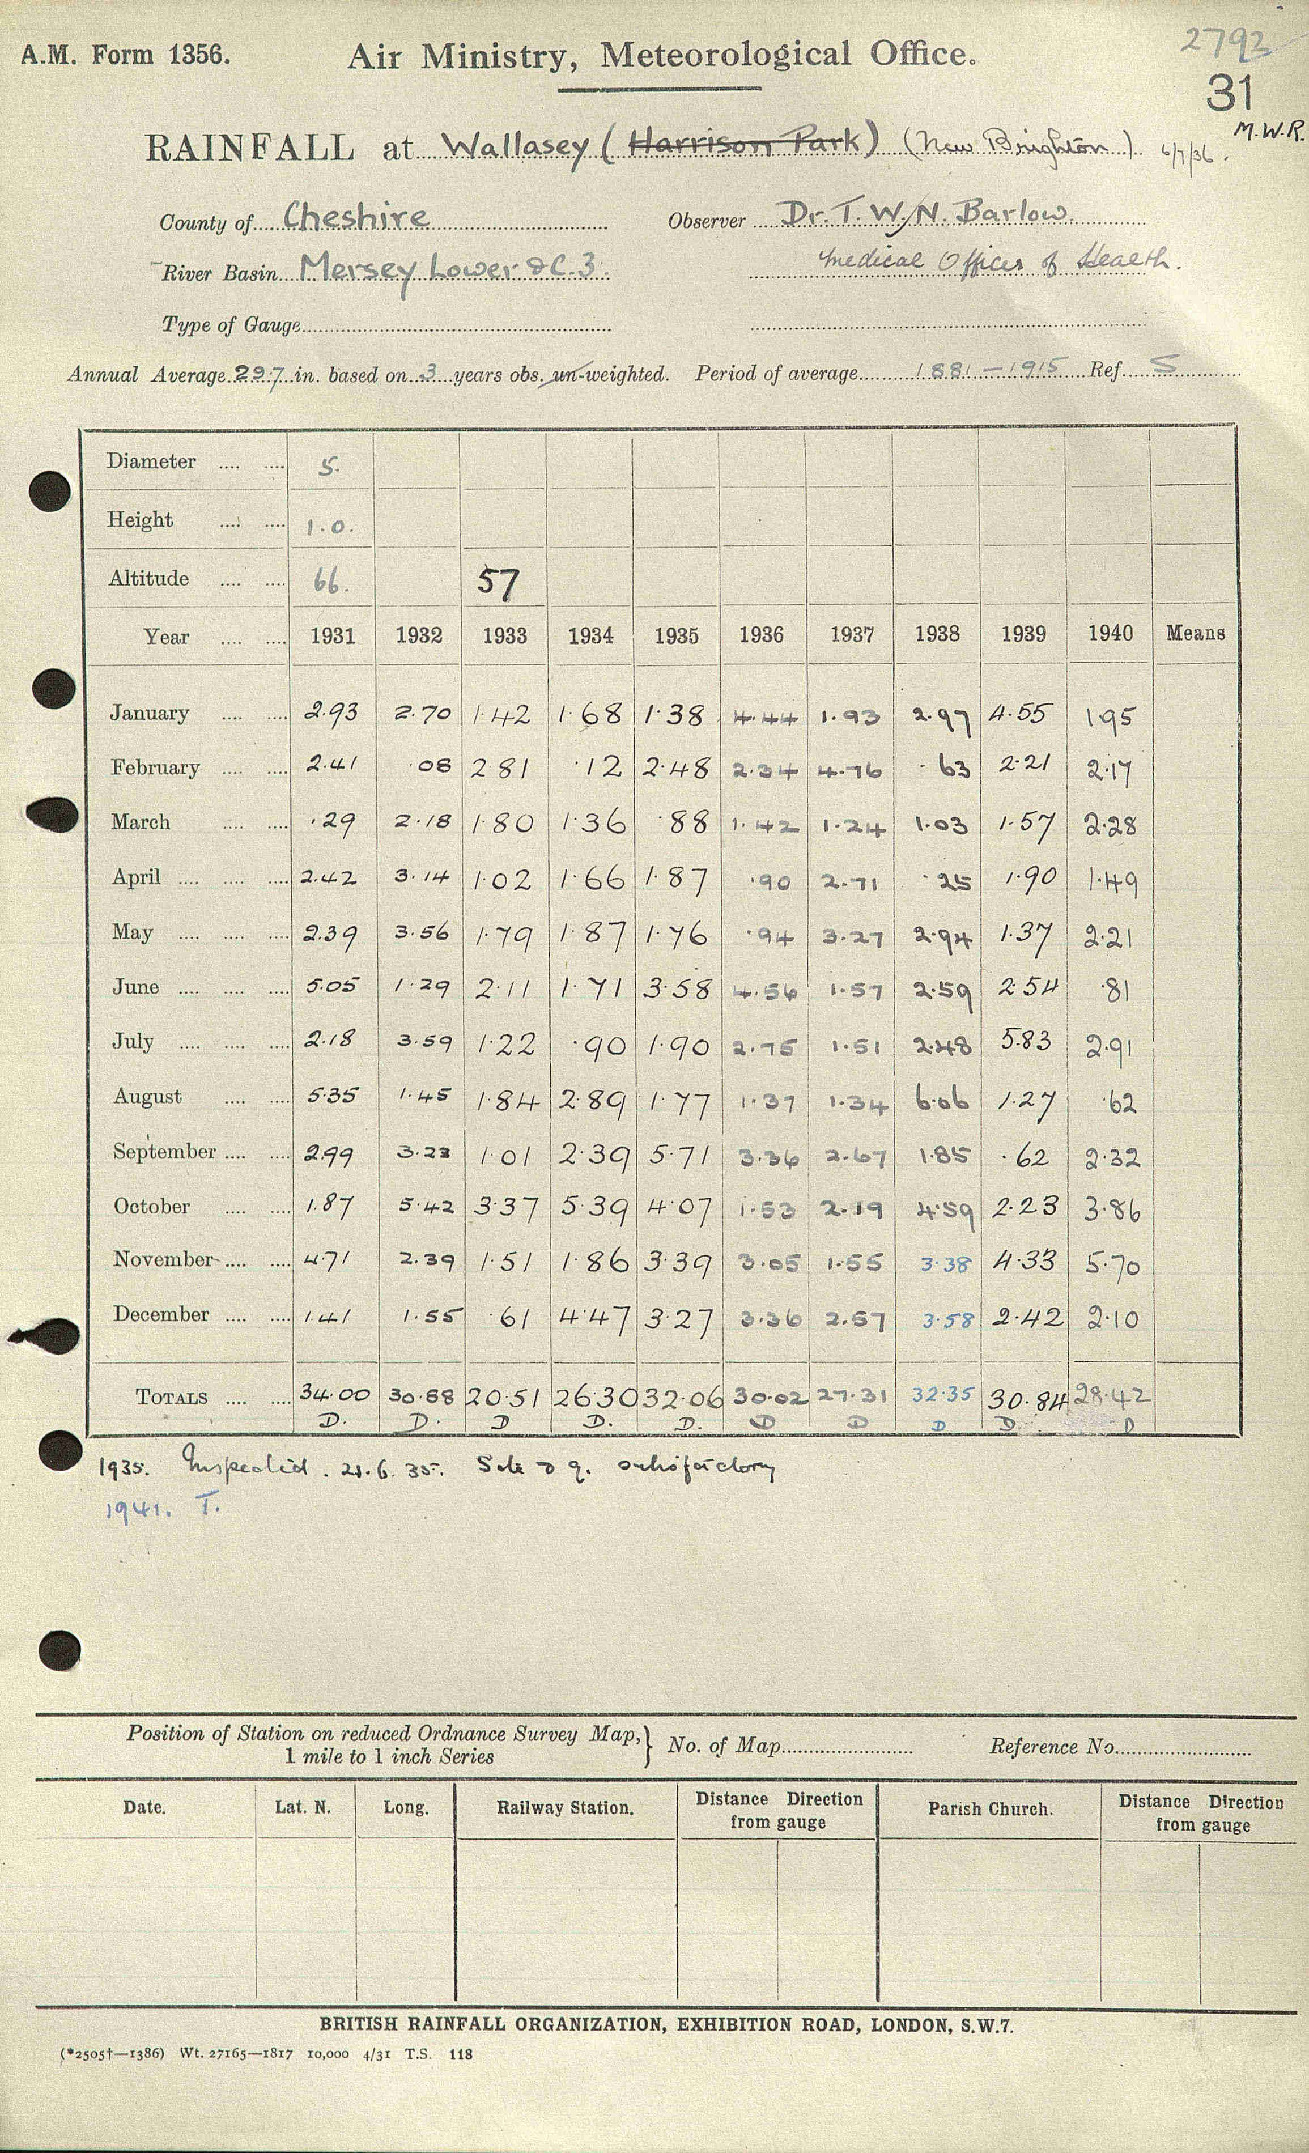 A.M. Form 1356. Air Ministry, Meteorological Office. 2793
31
M.W.R.
RAINFALL at Wallasey (Harrison Park) (New Brighton) 6/7/36.
County of Cheshire Observer Dr. T. W. N. Barlow
River Basin Mersey Lower & C.3. Medical Officer of Health.
Type of Gauge
Annual Average 29.7 in. based on 3 years obs. un-weighted. Period of average 1881-1915 Ref. S
Diameter .... .... 5.
Height .... .... 1.0.
Altitude .... .... 66. 57
Year .... .... 1931 1932 1933 1934 1935 1936 1937 1938 1939 1940 Means
January .... .... 2.93 2.70 1.42 1.68 1.38 4.44 1.93 2.97 4.55 1.95
February .... .... 2.41 .08 2.81 .12 2.48 2.34 4.76 .63 2.21 2.17
March .... .... .29 2.18 1.80 1.36 .88 1.42 1.24 1.03 1.57 2.28
April .... .... .... 2.42 3.14 1.02 1.66 1.87 .90 2.71 .25 1.90 1.49
May .... .... .... 2.39 3.56 1.79 1.87 1.76 .94 3.27 2.94 1.37 2.21
June .... .... .... 5.05 1.29 2.11 1.71 3.58 4.56 1.57 2.59 2.54 .81
July .... .... .... 2.18 3.59 1.22 .90 1.90 2.75 1.51 2.48 5.83 2.91
August .... .... 5.35 1.45 1.84 2.89 1.77 1.37 1.34 6.06 1.27 .62
September .... .... 2.99 3.23 1.01 2.39 5.71 3.36 2.67 1.85 .62 2.32
October .... .... 1.87 5.42 3.37 5.39 4.07 1.53 2.19 4.59 2.23 3.86
November .... .... 4.71 2.39 1.51 1.86 3.39 3.05 1.55 3.38 4.33 5.70
December .... .... 1.41 1.55 .61 4.47 3.27 3.36 2.57 3.58 2.42 2.10
TOTALS .... .... 34.00 30.58 20.51 26.30 32.06 30.02 27.31 32.35 30.84 28.42
D. D. D D. D. D D D D. D
1935. Inspected. 21.6.35. Site & g. satisfactory
1941. T.
Position of Station on reduced Ordnance Survey Map,} No. of Map Reference No.
1 mile to 1 inch Series
Date. Lat. N. Long. Railway Station. Distance Direction Parish Church. Distance Direction
from gauge from gauge
BRITISH RAINFALL ORGANIZATION, EXHIBITION ROAD, LONDON, S.W.7.
(*2505†—1386) Wt. 27165—1817 10,000 4/31 T.S. 118